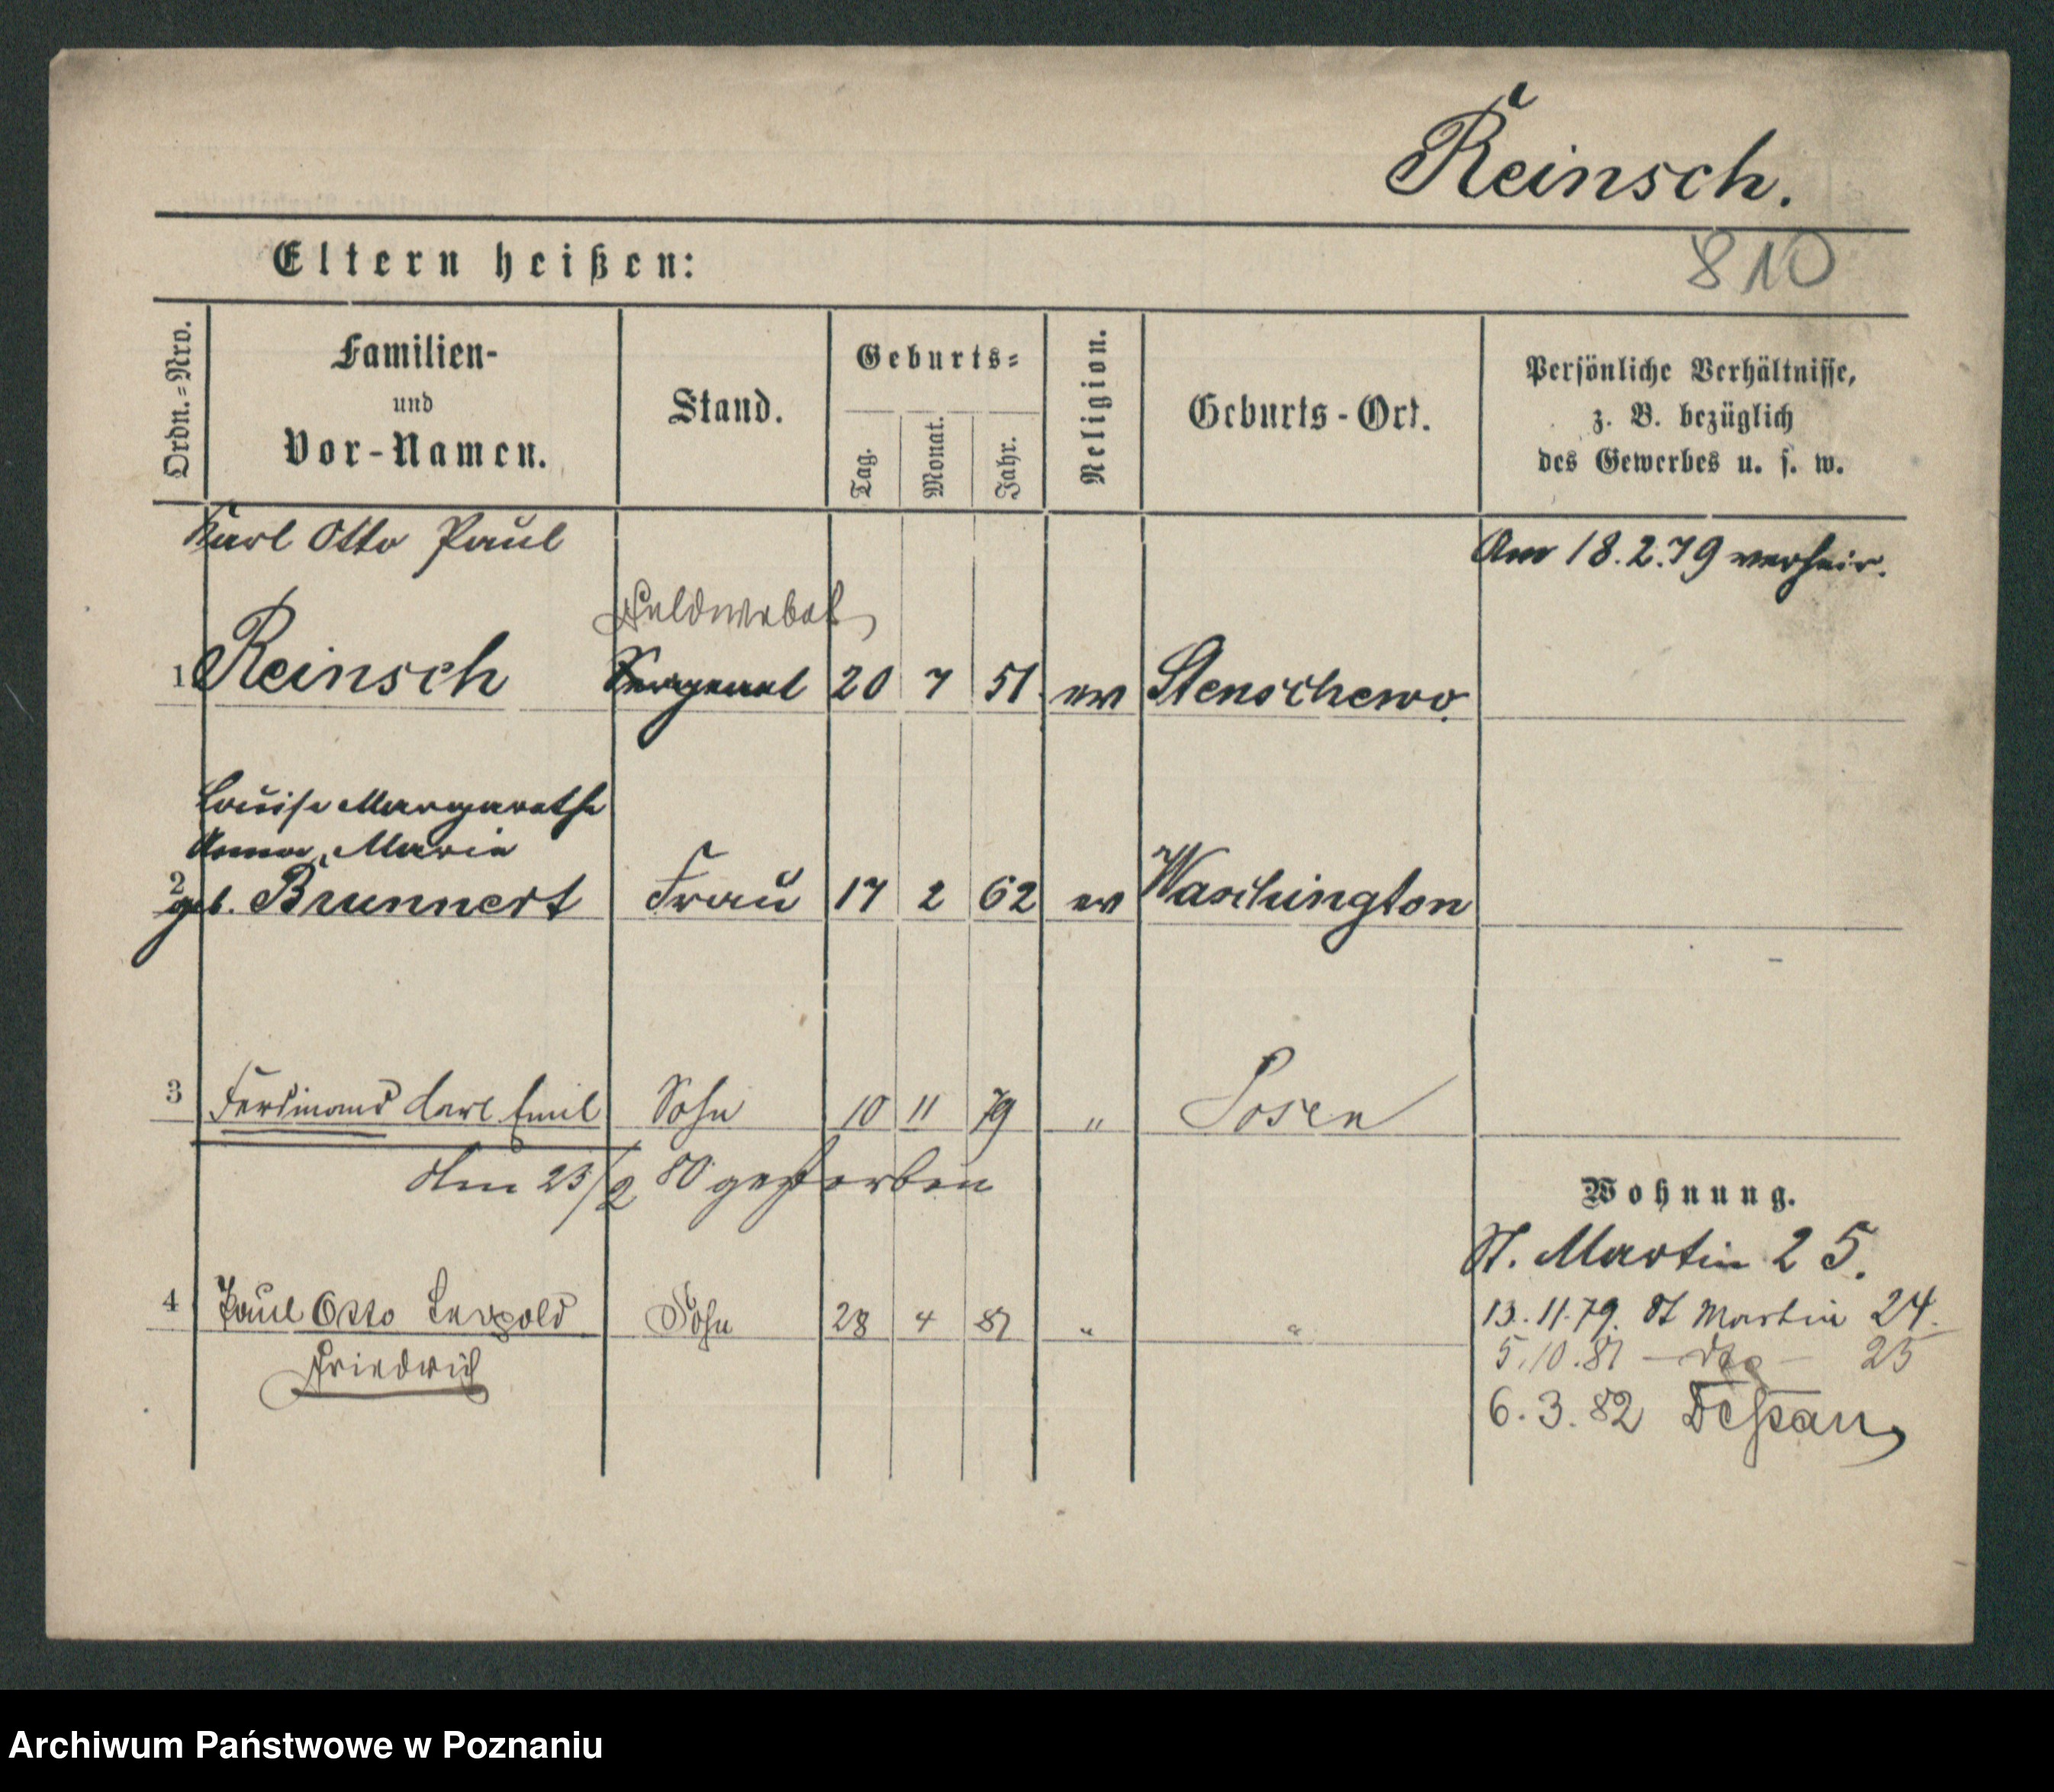 Reinsch.
810
Eltern heißen:
Ordn.=Nro.
Familien-
und
Vor-Namen.
Stand.
Geburts=
Tag.
Monat.
Jahr.
Religion.
Geburts-Ort.
Persönliche Verhältnisse,
z. B. bezüglich
des Gewerbes u. s. w.
Karl Otto Paul
Am 18.2.79 verheir.
Feldwebel
1 Reinsch Sergeant 20 7 51 ev Stenschewo
Louise Margarethe
Anna, Maria
2 geb. Brunnert Frau 17 2 62 ev Waschington
3 Ferdinand Carl Emil Sohn 10 11 79 " Posen
Am 23/2 80 gestorben
Wohnung.
St. Martin 25.
4 Paul Otto Leopold Sohn 28 4 81 " "
Friedrich
13.11.79. St Martin 24.
5.10.81 — dto — 25
6.3.82 Dessau
Archiwum Państwowe w Poznaniu